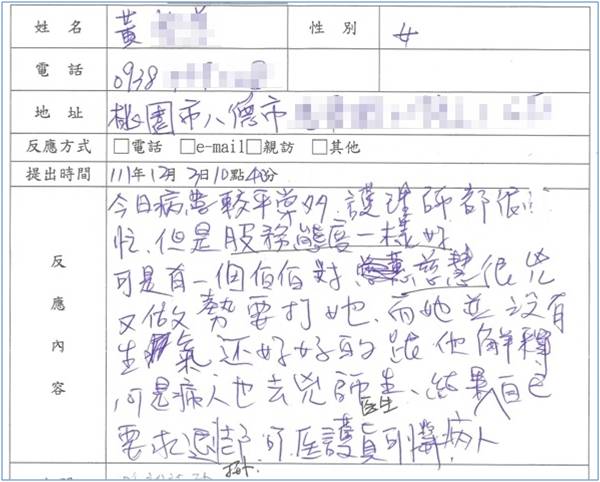 姓名 黃 性別 女
電話 0938
地址 桃園市八德市
反應方式 □電話 □e-mail □親訪 □其他
提出時間 111年12月2日10點40分
反應內容
今日病患較平常多,護理師都很
忙,但是服務態度一樣好
可是有一個伯伯對 慈慧很兇
又做勢要打她,而她並沒有
生氣還好好的跟他解釋
可是病人也去兇醫生、結果自己
要求退掛,可 護員可憐病人